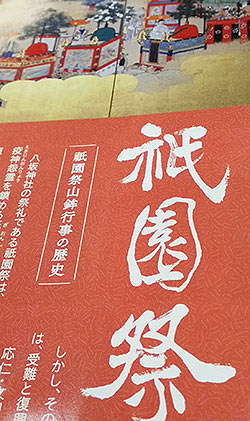 祇園祭
祇園祭山鉾行事の歴史
八坂神社の祭礼である祇園祭は、
疫神怨霊を鎮める
しかし、その
は、受難と復興
応仁・文明